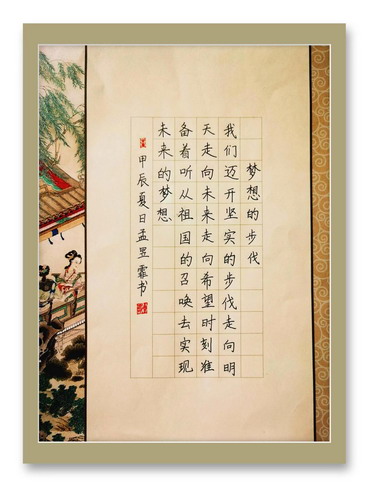 梦想的步伐
我们迈开坚实的步伐走向明
天走向未来走向希望时刻准
备着听从祖国的召唤去实现
未来的梦想
甲辰夏日孟昱书